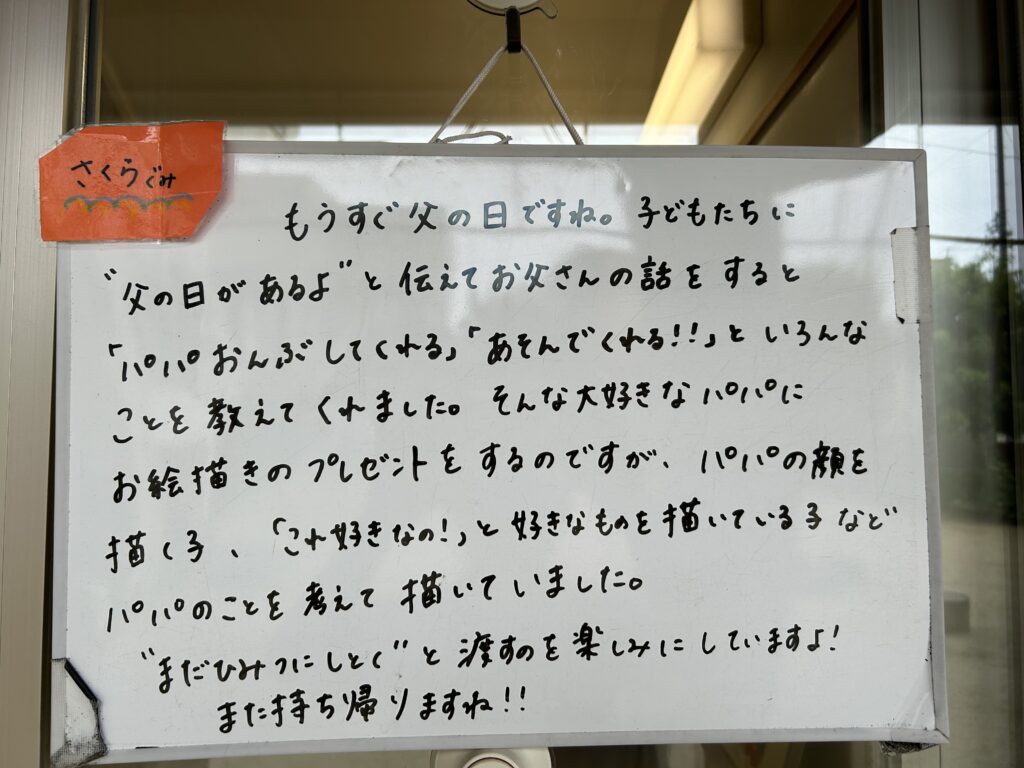 さくらぐみ
もうすぐ父の日ですね。子どもたちに
"父の日があるよ"と伝えてお父さんの話をすると
「パパおんぶしてくれる」「あそんでくれる!!」といろんな
ことを教えてくれました。そんな大好きなパパに
お絵描きのプレゼントをするのですが、パパの顔を
描く子、「これ好きなの!」と好きなものを描いている子など
パパのことを考えて描いていました。
"まだひみつにしとく"と渡すのを楽しみにしていますよ!
また持ち帰りますね!!